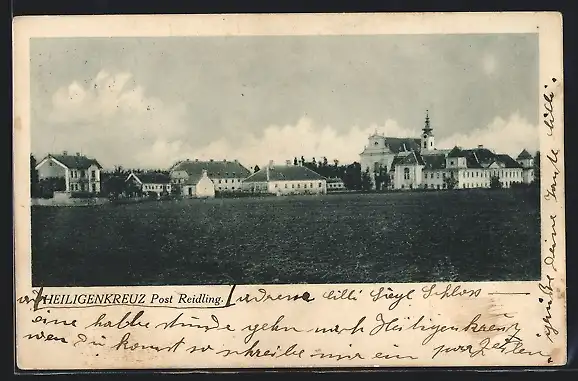 HEILIGENKREUZ Post Reidling.
adresse Lilli Siegl Schloss
eine halbe stunde gehn nach Heiligenkreuz
wen du komst so schreibe mir ein par Zeilen
grüße deine Tante Lilli.